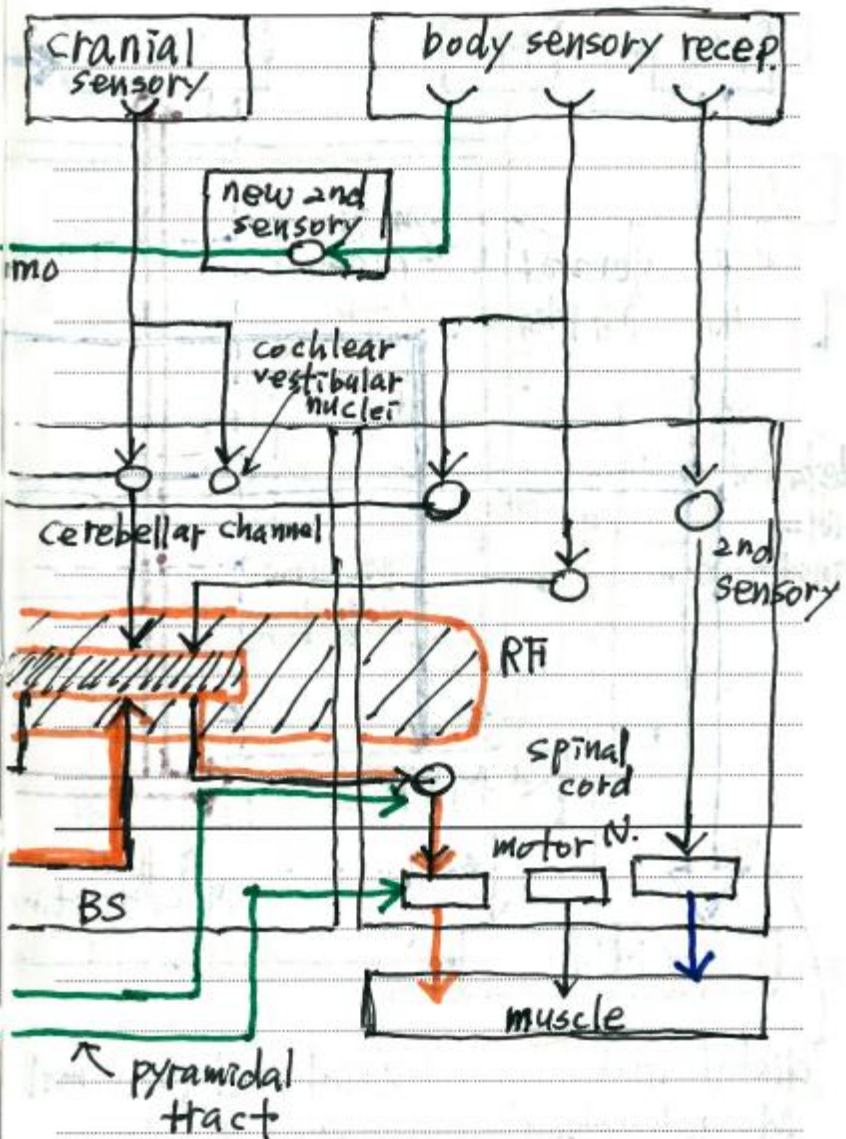 cranial
sensory
body sensory recep.
new 2nd
sensory
mo
cochlear
vestibular
nuclei
cerebellar channel
2nd
sensory
RF
spinal
cord
motor N.
BS
muscle
pyramidal
tract